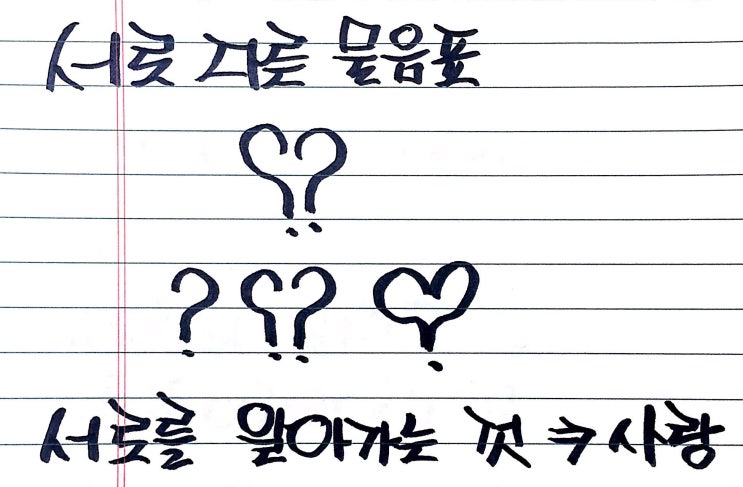 서로 다른 물음표
⸮?
? ⸮? ♡
서로를 알아가는 것 → 사랑